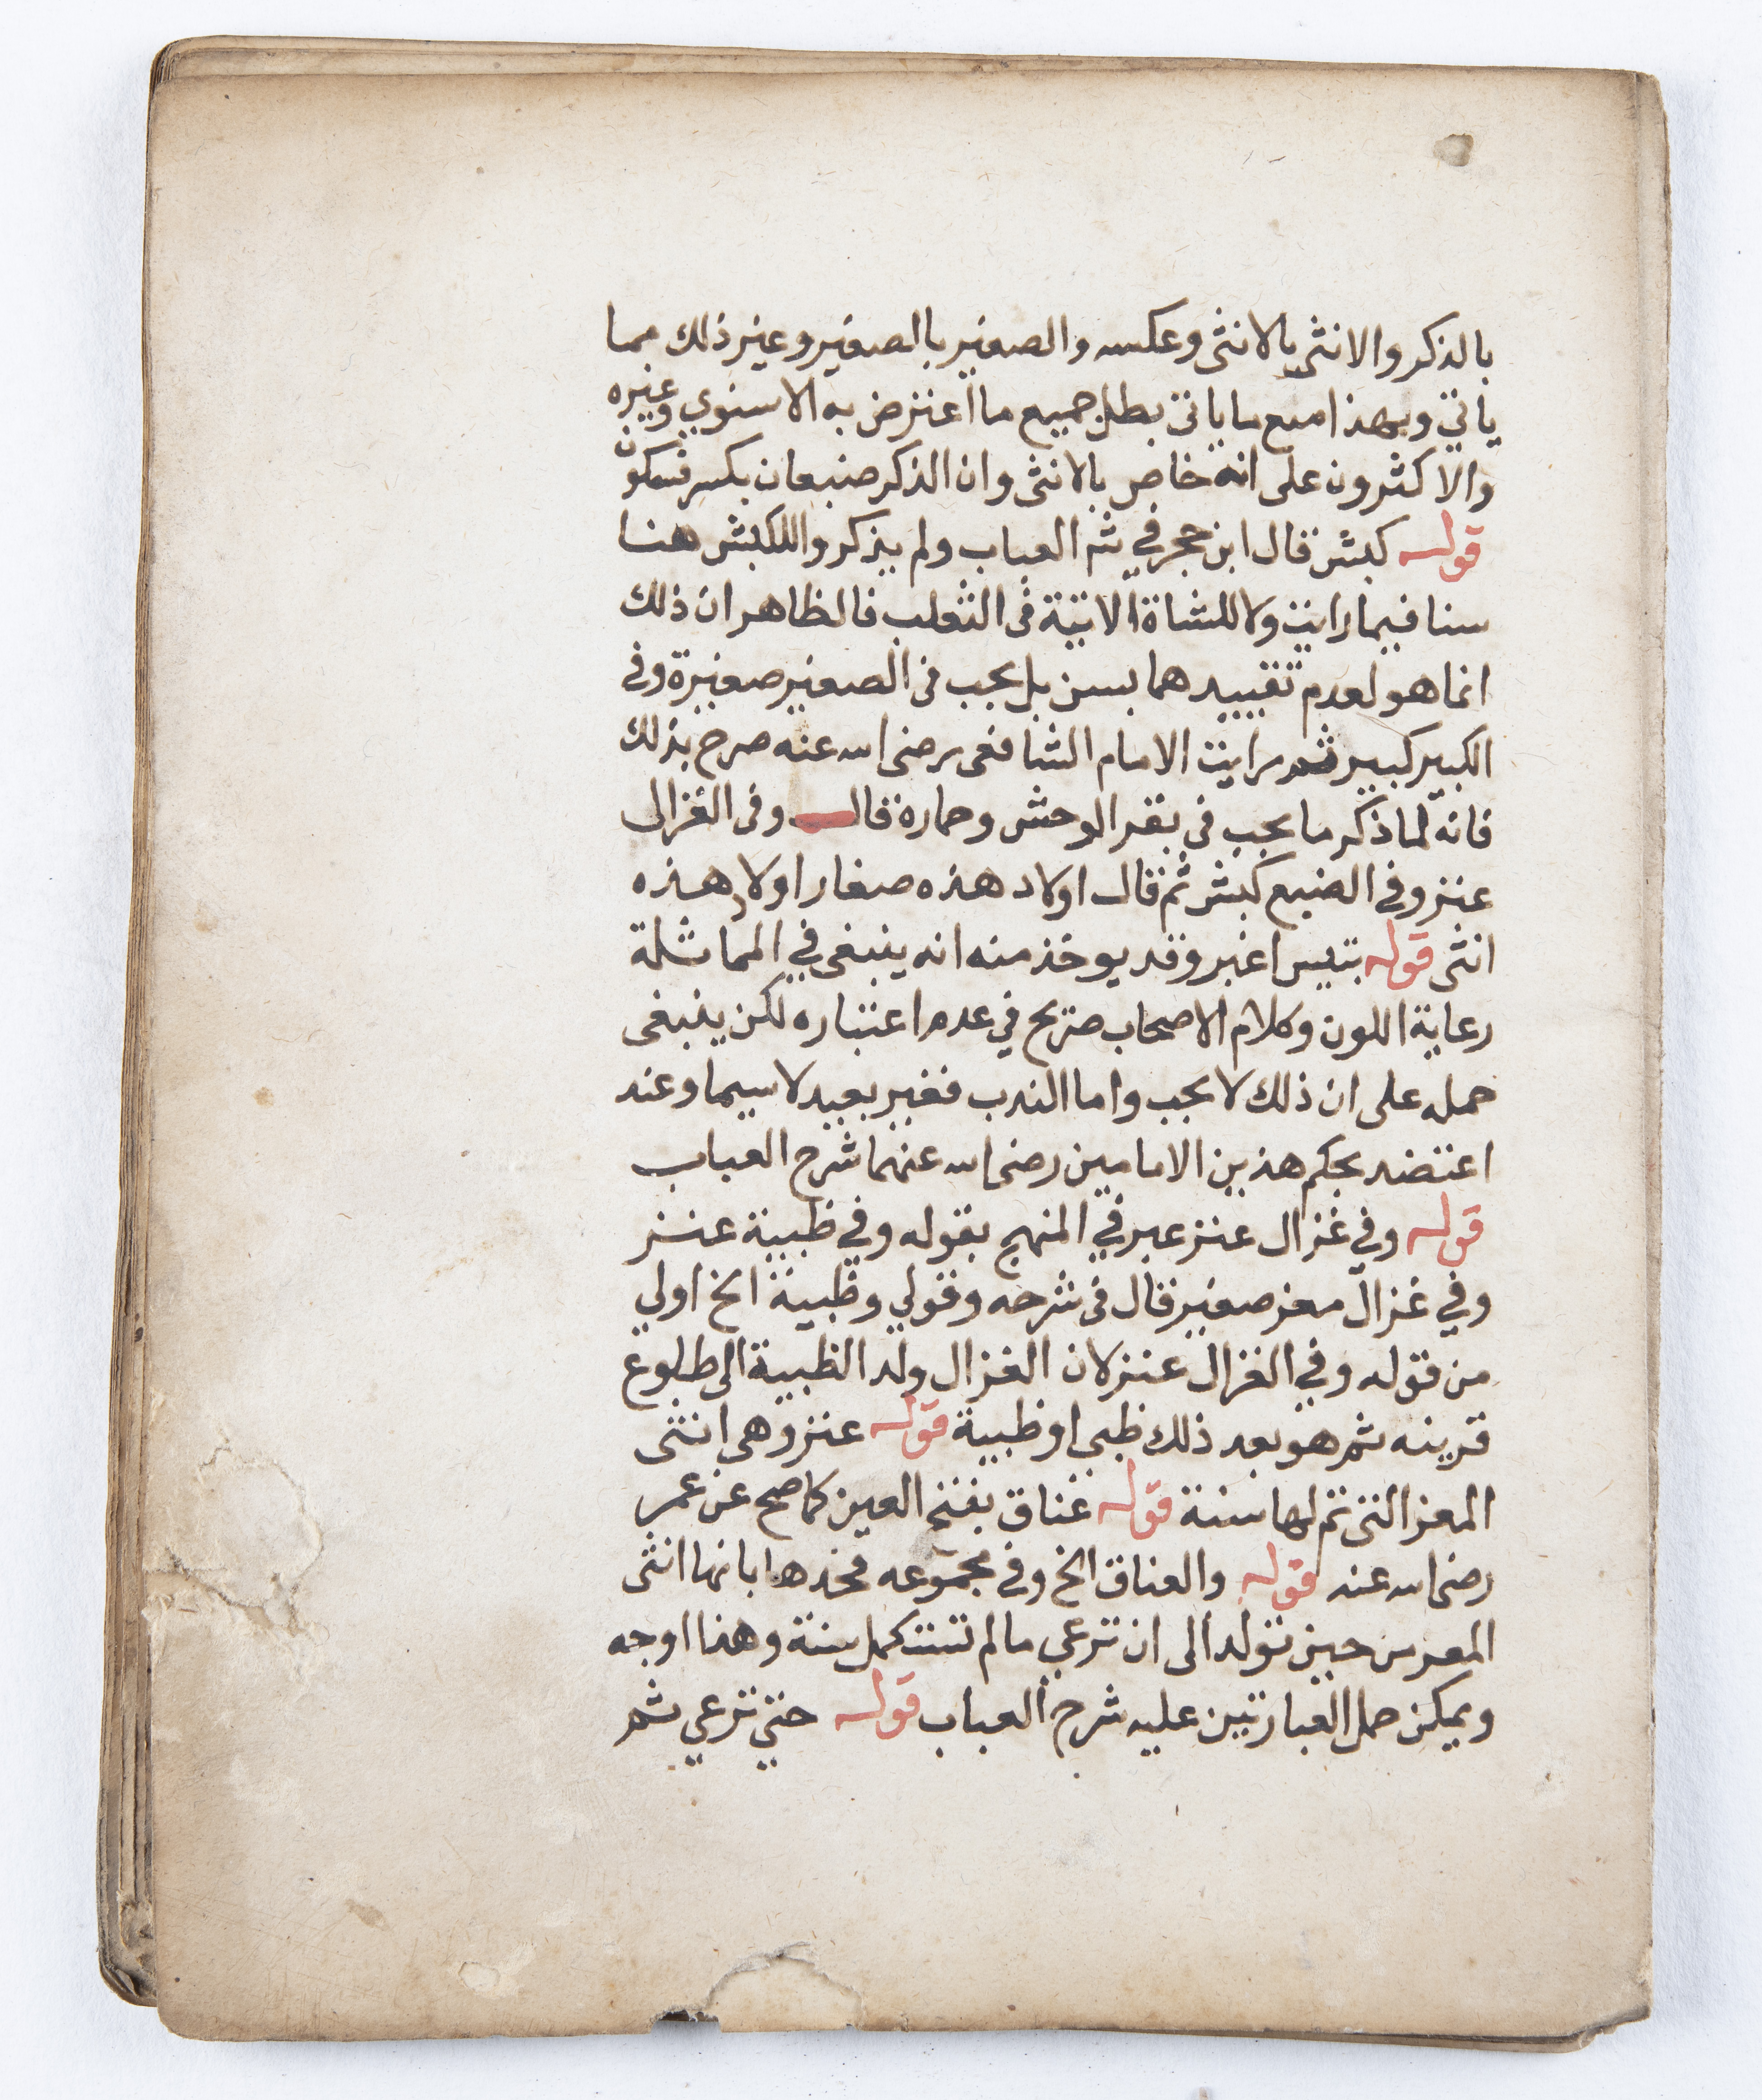 بالذكر والانثى بالانثى وعكسه والصغير بالصغير وغير ذلك مما
ياتي وبهذا مع ما ياتي بطل جميع ما اعترض به الاسنوي وغيره
والاكثرون على انه خاص بالانثى وان الذكر ضبعان بكسر فسكون
قوله كبش قال ابن حجر في شم العباب ولم يذكروا للكبش هنا
سنا فيما رايت ولا للشاة الاتية في الثعلب فالظاهر ان ذلك
انما هو لعدم تقييدهما بسن بل يجب في الصغير صغيرة وفي
الكبير كبير ثم رايت الامام الشافعي رضي الله عنه صرح بذلك
فانه لما ذكر ما يجب في بقر الوحش وحماره قال وفي الغزال
عنز وفي الضبع كبش ثم قال اولاد هذه صغار اولاد هذه
انثى قوله بتيس اغبر وقد يوخذ منه انه ينبغي في المماثلة
رعاية اللون وكلام الاصحاب صريح في عدم اعتباره لكن ينبغي
حمله على ان ذلك لا يجب واما الندب فغير بعيد لا سيما وعند
اعتضد بحكم هذين الامامين رضي الله عنهما شرح العباب
قوله وفي غزال عنز عبر في المنهج بقوله وفي ظبية عنز
وفي غزال معز صغير قال في شرحه وقولي وظبية الخ اولي
من قوله وفي الغزال عنز لان الغزال ولد الظبية الى طلوع
قرينه ثم هو بعد ذلك ظبي او ظبية قوله عنز وهي انثى
المعز التي تم لها سنة قوله عناق بفتح العين كما صح عن عمر
رضي الله عنه قوله والعناق الخ وفي مجموعه فحدها بانها انثى
المعز من حين تولد الى ان ترعي ما لم تستكمل سنة وهذا اوجه
ويمكن حمل العبارتين عليه شرح العباب قوله حتي ترعي ثم